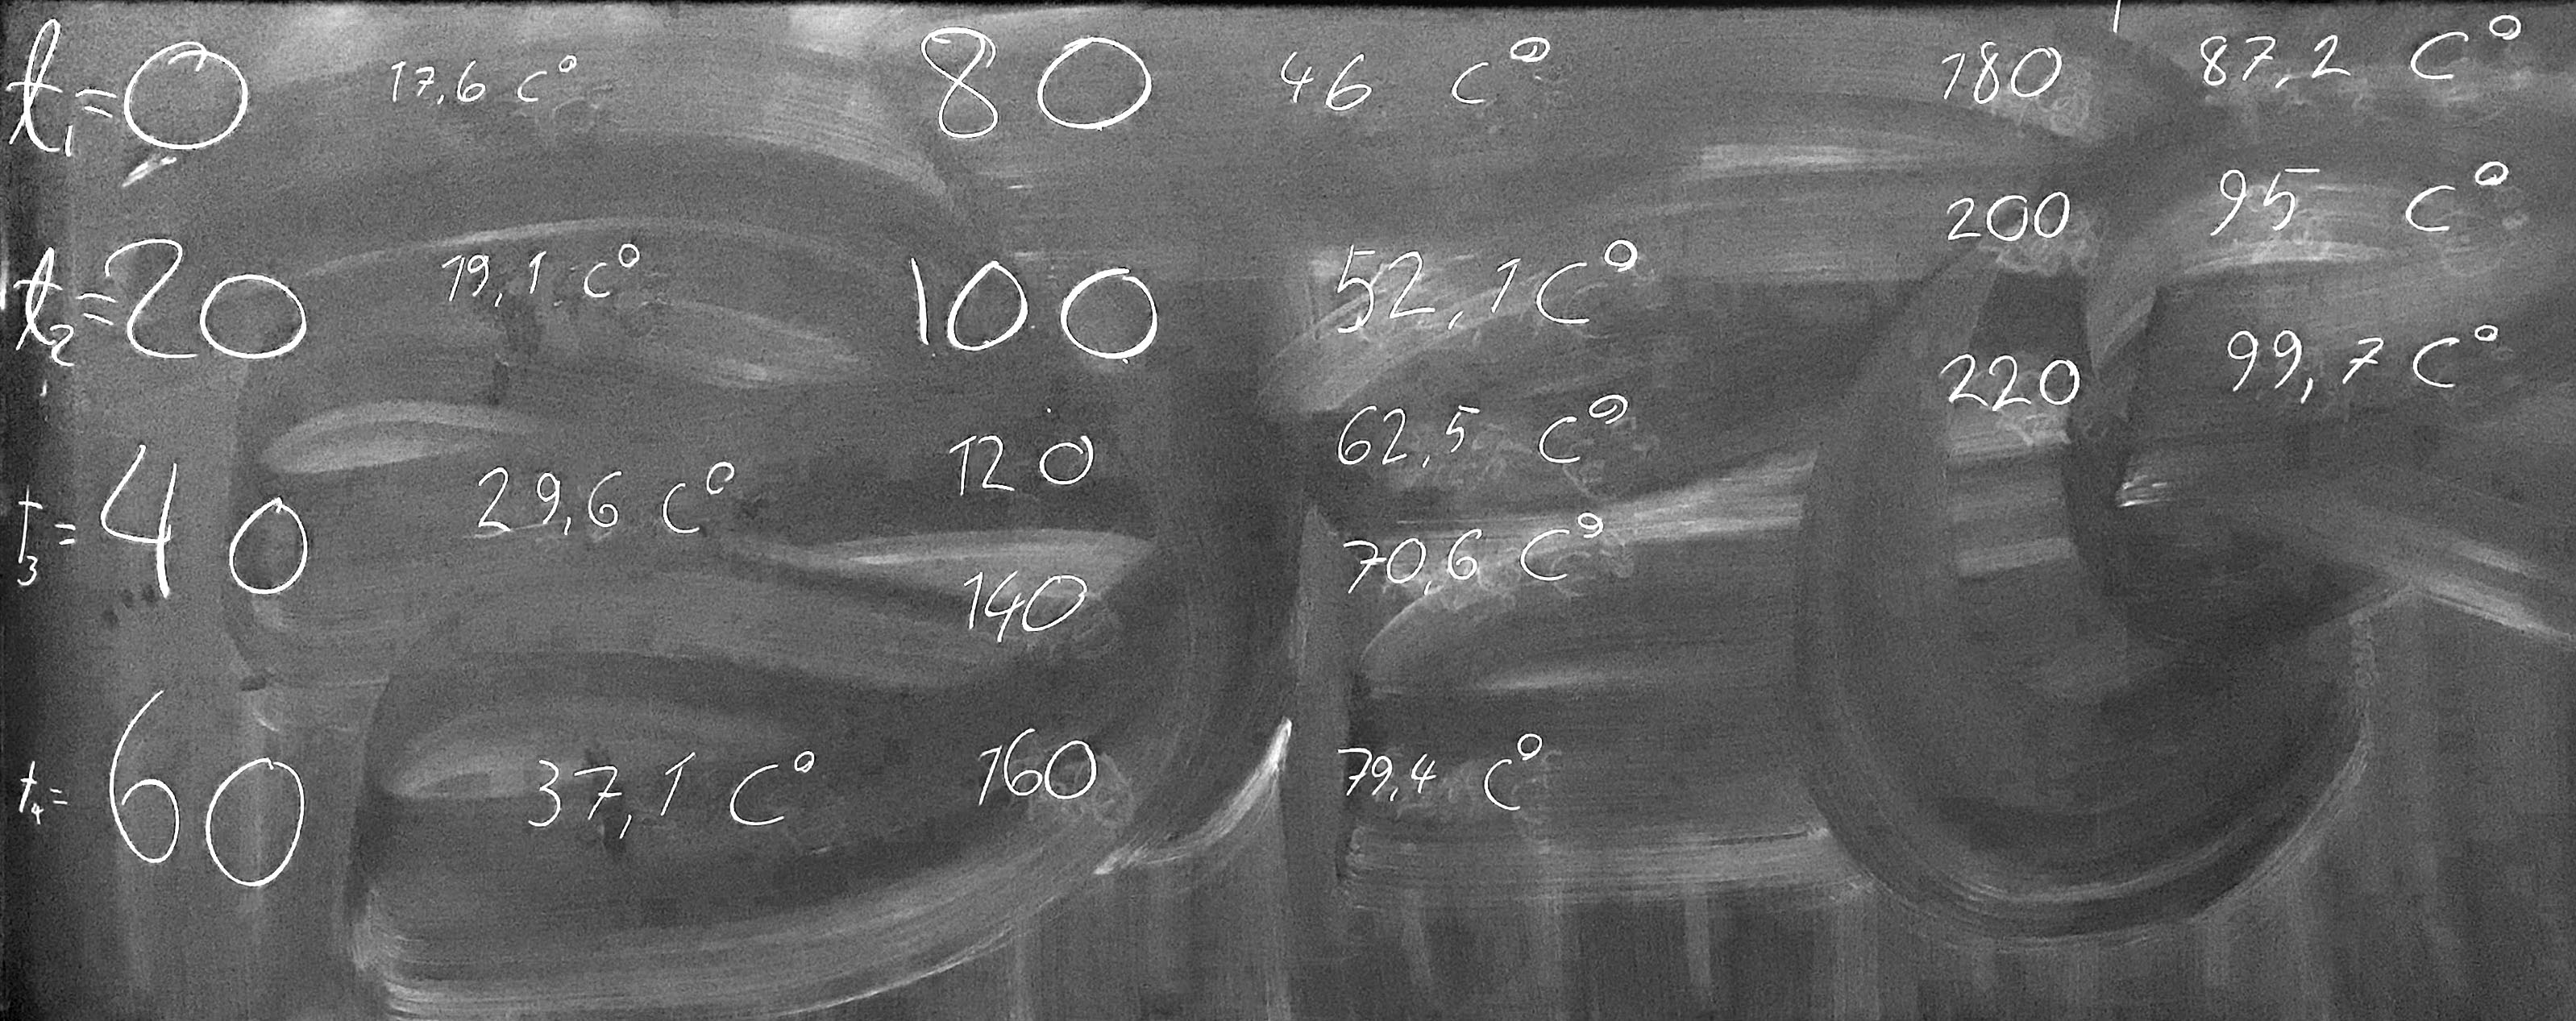 t₁=0 17,6 C°
t₂=20 19,1 C°
t₃=40 29,6 C°
t₄=60 37,1 C°
80 46 C°
100 52,1 C°
120 62,5 C°
140 70,6 C°
160 79,4 C°
180 87,2 C°
200 95 C°
220 99,7 C°